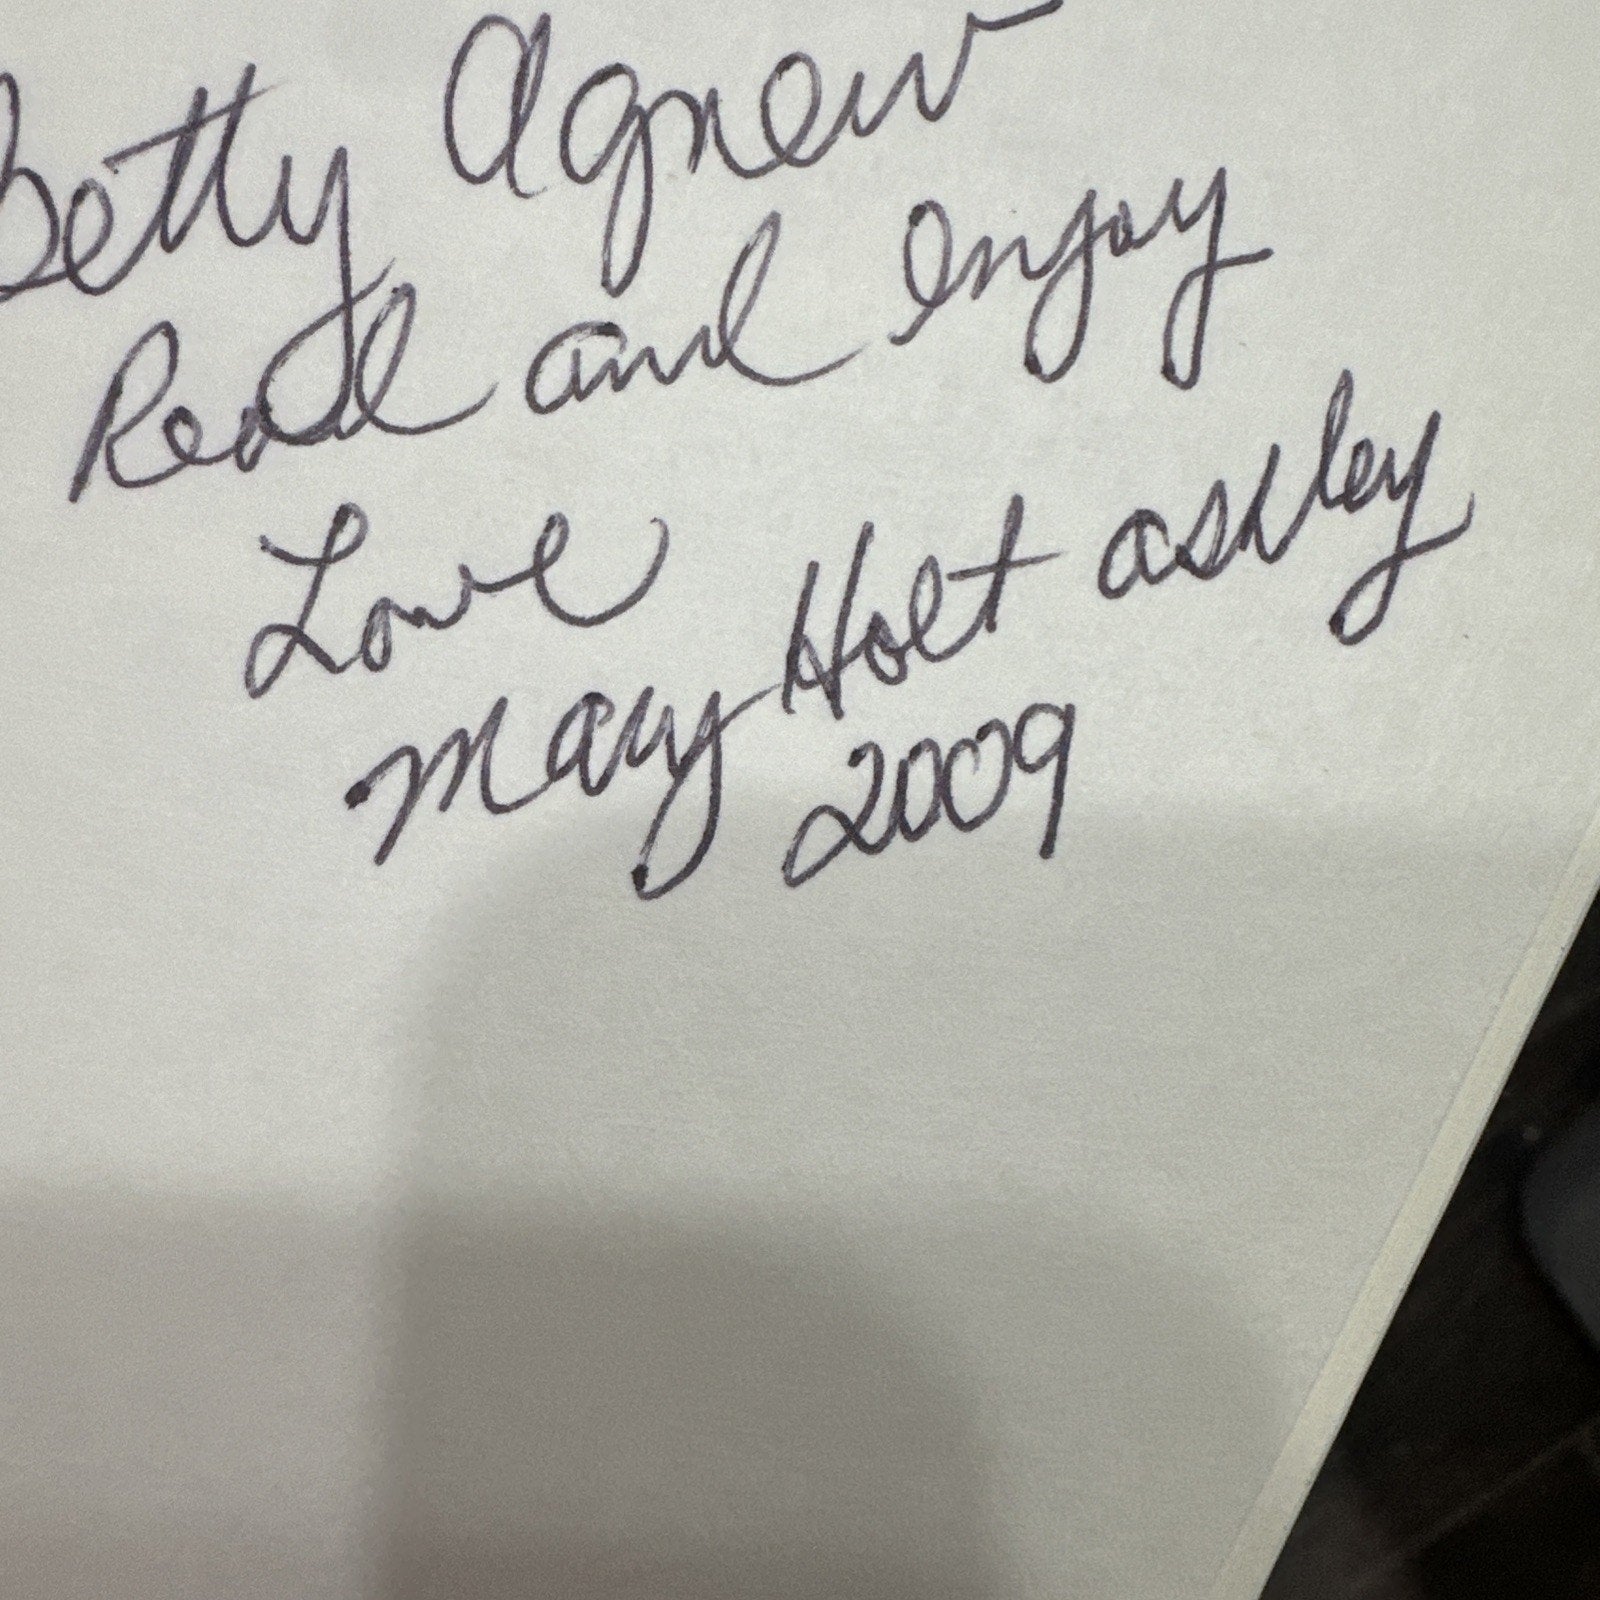 Betty Agnew
Read and enjoy
Love
Mary Holt Ashley
2009